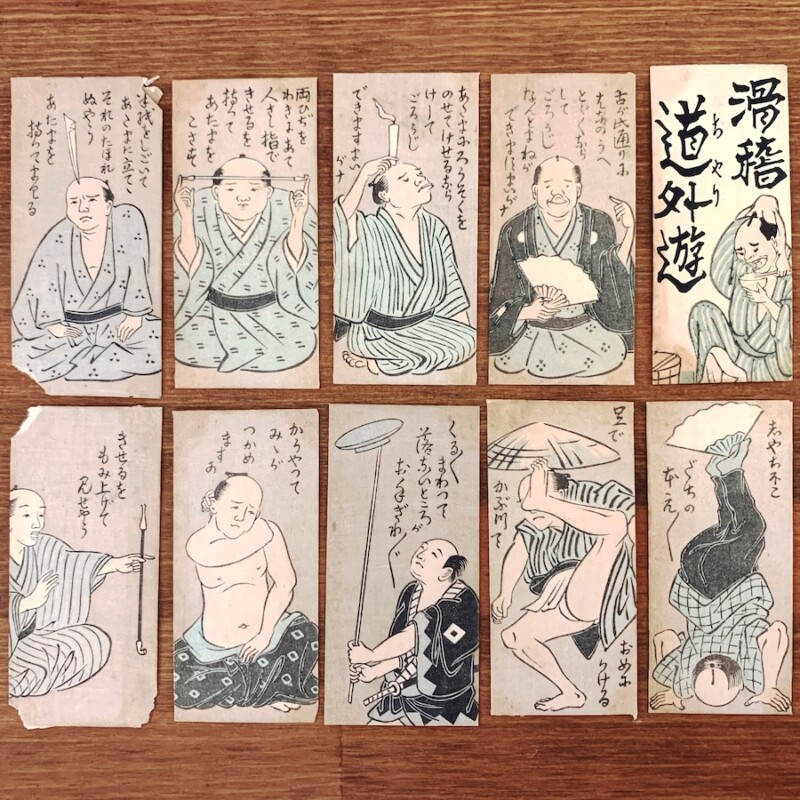 滑稽
道外遊
ちやり
舌が此通りに
はなのうへ
とゞくから
して
ごろうじ
なんとまねが
できますまいがナ
あたまにろうそくを
のせてけせるから
けして
ごろうじ
できますまい
がナ
両ひぢを
わきにあて
人さし指で
きせるを
持つて
あたまを
こさせ
半紙をしごいて
あたまに立てゝ
それのたほれ
ぬやう
あたまを
持つてまゐる
しやちほこ
だちの
足で
かぶつて
おめに
かける
くる〱まわつて
落ちないところが
お手ぎわ〱
かうやつて
みゝが
つかめ
ますか
きせるを
もみ上げて
見せやう